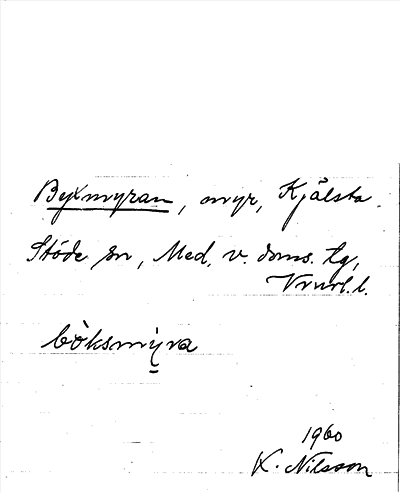 Byxmyran, myr, Kjälsta.
Stöde sn, Med. v. doms. tg,
Vnrl. l.
bòksmỳra
1960
K. Nilsson